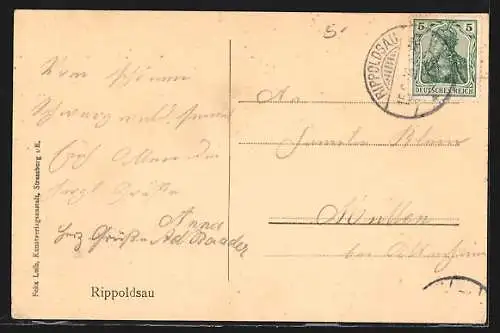 5
5 5
DEUTSCHES REICH
RIPPOLDSAU
Vom schönen
Schwarzwald sendet
Euch Allen die
herzl. Grüße
Anna
herz Grüße Ad. Baader
An
Familie Blum
Müllen
bei Altenheim
Felix Luib, Kunstverlagsanstalt, Strassburg i/E.
Rippoldsau